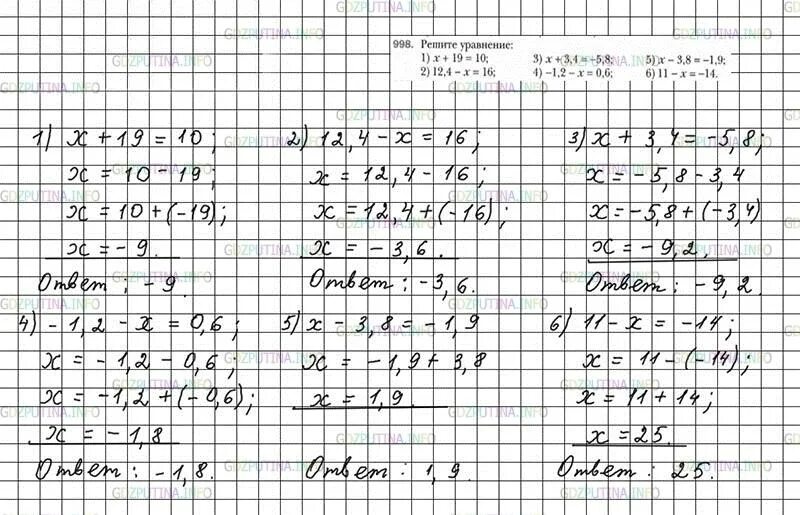 GDZPUTINA.INFO
998. Решите уравнение:
1) x + 19 = 10; 3) x + 3,4 = –5,8; 5) x – 3,8 = –1,9;
2) 12,4 – x = 16; 4) –1,2 – x = 0,6; 6) 11 – x = –14.
1) x + 19 = 10;
x = 10 - 19;
x = 10 + (-19);
x = - 9.
Ответ: - 9.
2) 12,4 - x = 16;
x = 12,4 - 16;
x = 12,4 + (-16);
x = - 3,6.
Ответ: -3,6.
3) x + 3,4 = -5,8;
x = -5,8 - 3,4
x = -5,8 + (-3,4)
x = -9,2.
Ответ: -9,2.
4) - 1,2 - x = 0,6;
x = - 1,2 - 0,6;
x = -1,2 + (-0,6);
x = - 1,8
Ответ: -1,8.
5) x - 3,8 = -1,9
x = -1,9 + 3,8
x = 1,9.
Ответ: 1,9.
6) 11 - x = -14;
x = 11 - (-14);
x = 11 + 14;
x = 25.
Ответ: 25.